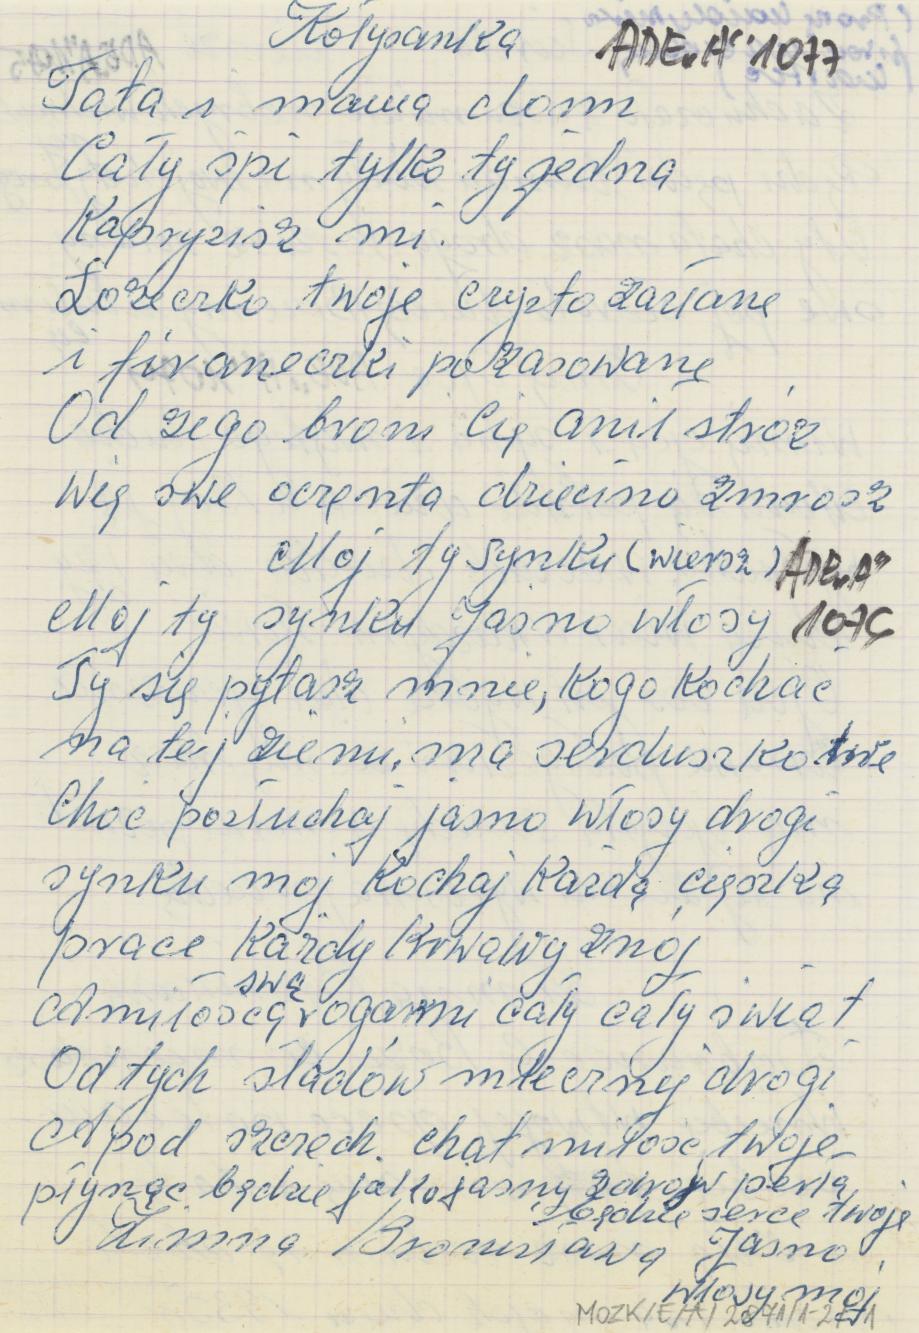 Kołysanka
ADE„A" 1077
Tata i mama dom
Cały śpi tylko ty jedna
Kaprysisz mi.
Łozeczko twoje czysto zasłane
i firaneczki pozasowane
Od zego broni Cię anił stróz
Wię swe oczęnta dziecino zmrosz
Moj ty synku (wiersz) ADE„A"
Moj ty synku Jasno włosy 1076
Ty się pytasz mnie, kogo kochac
na tej ziemi, ma serduszko twe
Choć posłuchaj jasno włosy drogi
synku moj Kochaj Każdą cięszką
prace Każdy krwawy znój
swą
miłoscą rogarni cały cały świat
Od tych śladów mlecznej drogi
od pod szczech chat miłosc twoje
płynąc będzie jakoj jasny zdrojw perłą
będzie serce twoje
Zimna Bronisława Jasno
włosy moj
MOZK/E/A/2871/1-2771